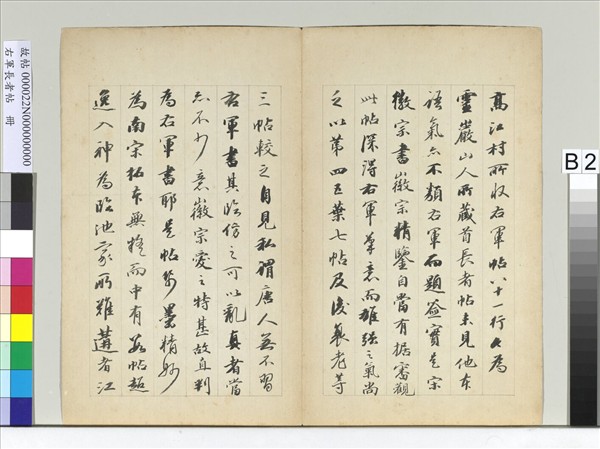 高江村所收右軍帖八十一行久為
靈巖山人所藏首長者帖未見他本
語氣亦不類右軍而題簽實是宗
徽宗書徽宗精鑒自當有据審觀
此帖深得右軍筆意而雄強之氣尚
之以第四五葉七帖及後幾老等
三帖較之自見私謂唐人無不習
右軍書其臨仿之可以亂真者當
不少意徽宗愛之特甚故自判
為右軍書耶是帖紙墨精妙
為南宋拓本無疑而中有數帖超
逸入神為臨池家所難遘者江
故帖 000022N000000000
右軍長者帖 冊
B 2